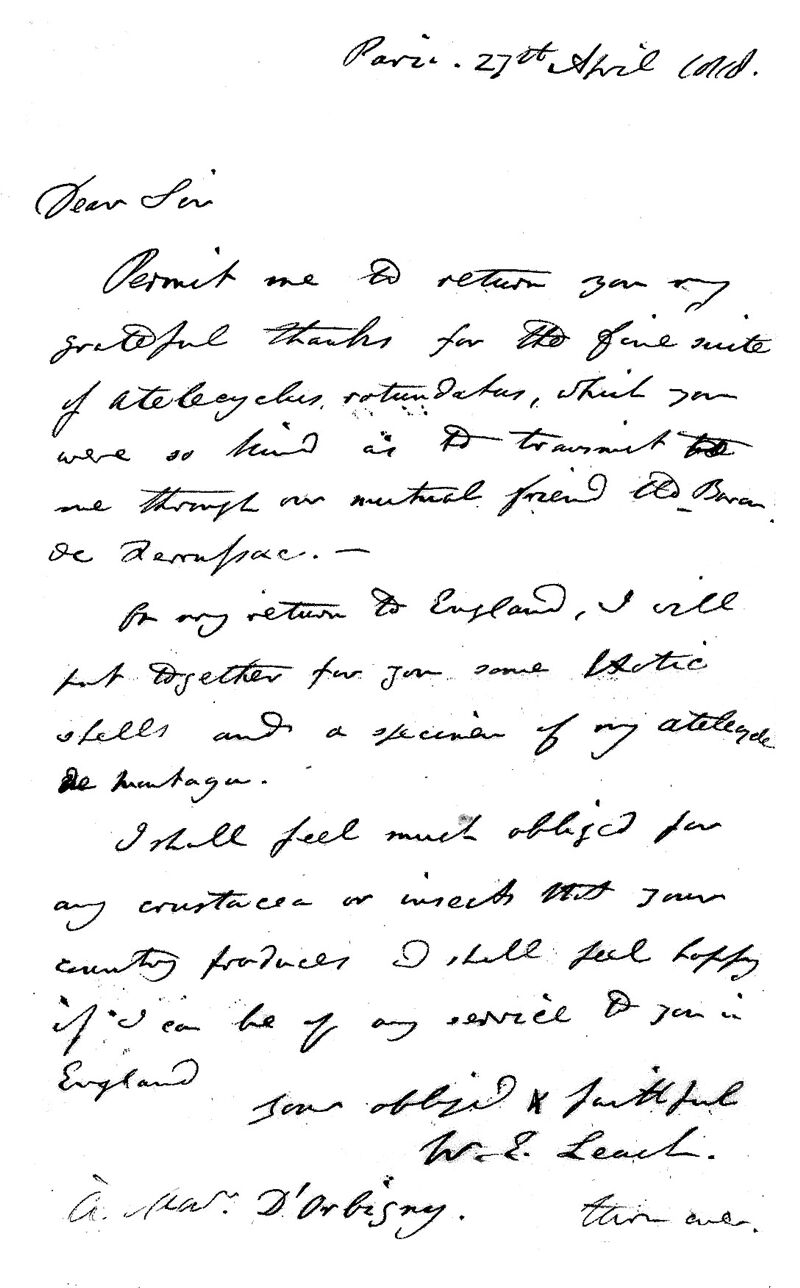 Paris. 27th April 1818.
Dear Sir
Permit me to return you my
grateful thanks for the fine suite
of atelecyclus rotundatus, which you
were so kind as to transmit to
me through our mutual friend the Baron
de Ferussac. —
On my return to England, I will
put together for you some Exotic
shells and a specimen of my atelecycle
de montagu.
I shall feel much obliged for
any crustacea or insects that your
country produces I shall feel happy
if I can be of any service to you in
England
your obliged & faithful
W. E. Leach.
à D'Orbigny.
turn over.